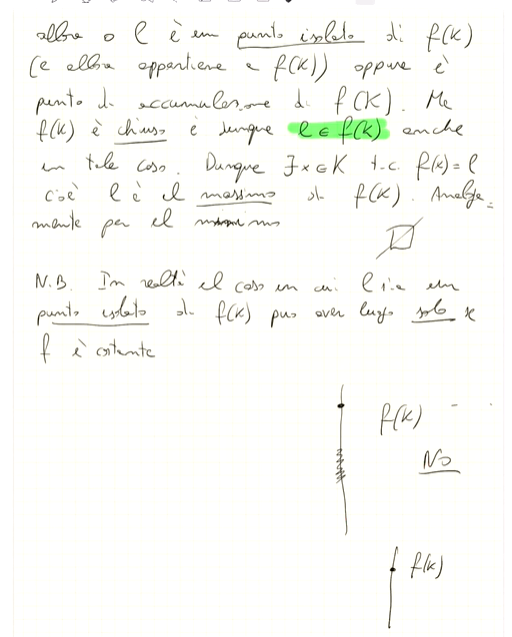 allora o l è un punto isolato di f(K)
(e allora appartiene a f(K)) oppure è
punto di accumulazione di f(K). Ma
f(K) è chiuso e dunque l ∈ f(K) anche
in tale caso. Dunque ∃ x ∈ K t.c. f(x) = l
cioè l è il massimo di f(K). Analoga=
mente per il minimo
N.B. In realtà il caso in cui l sia un
punto isolato di f(K) può aver luogo solo se
f è costante
f(K)
No
f(K)